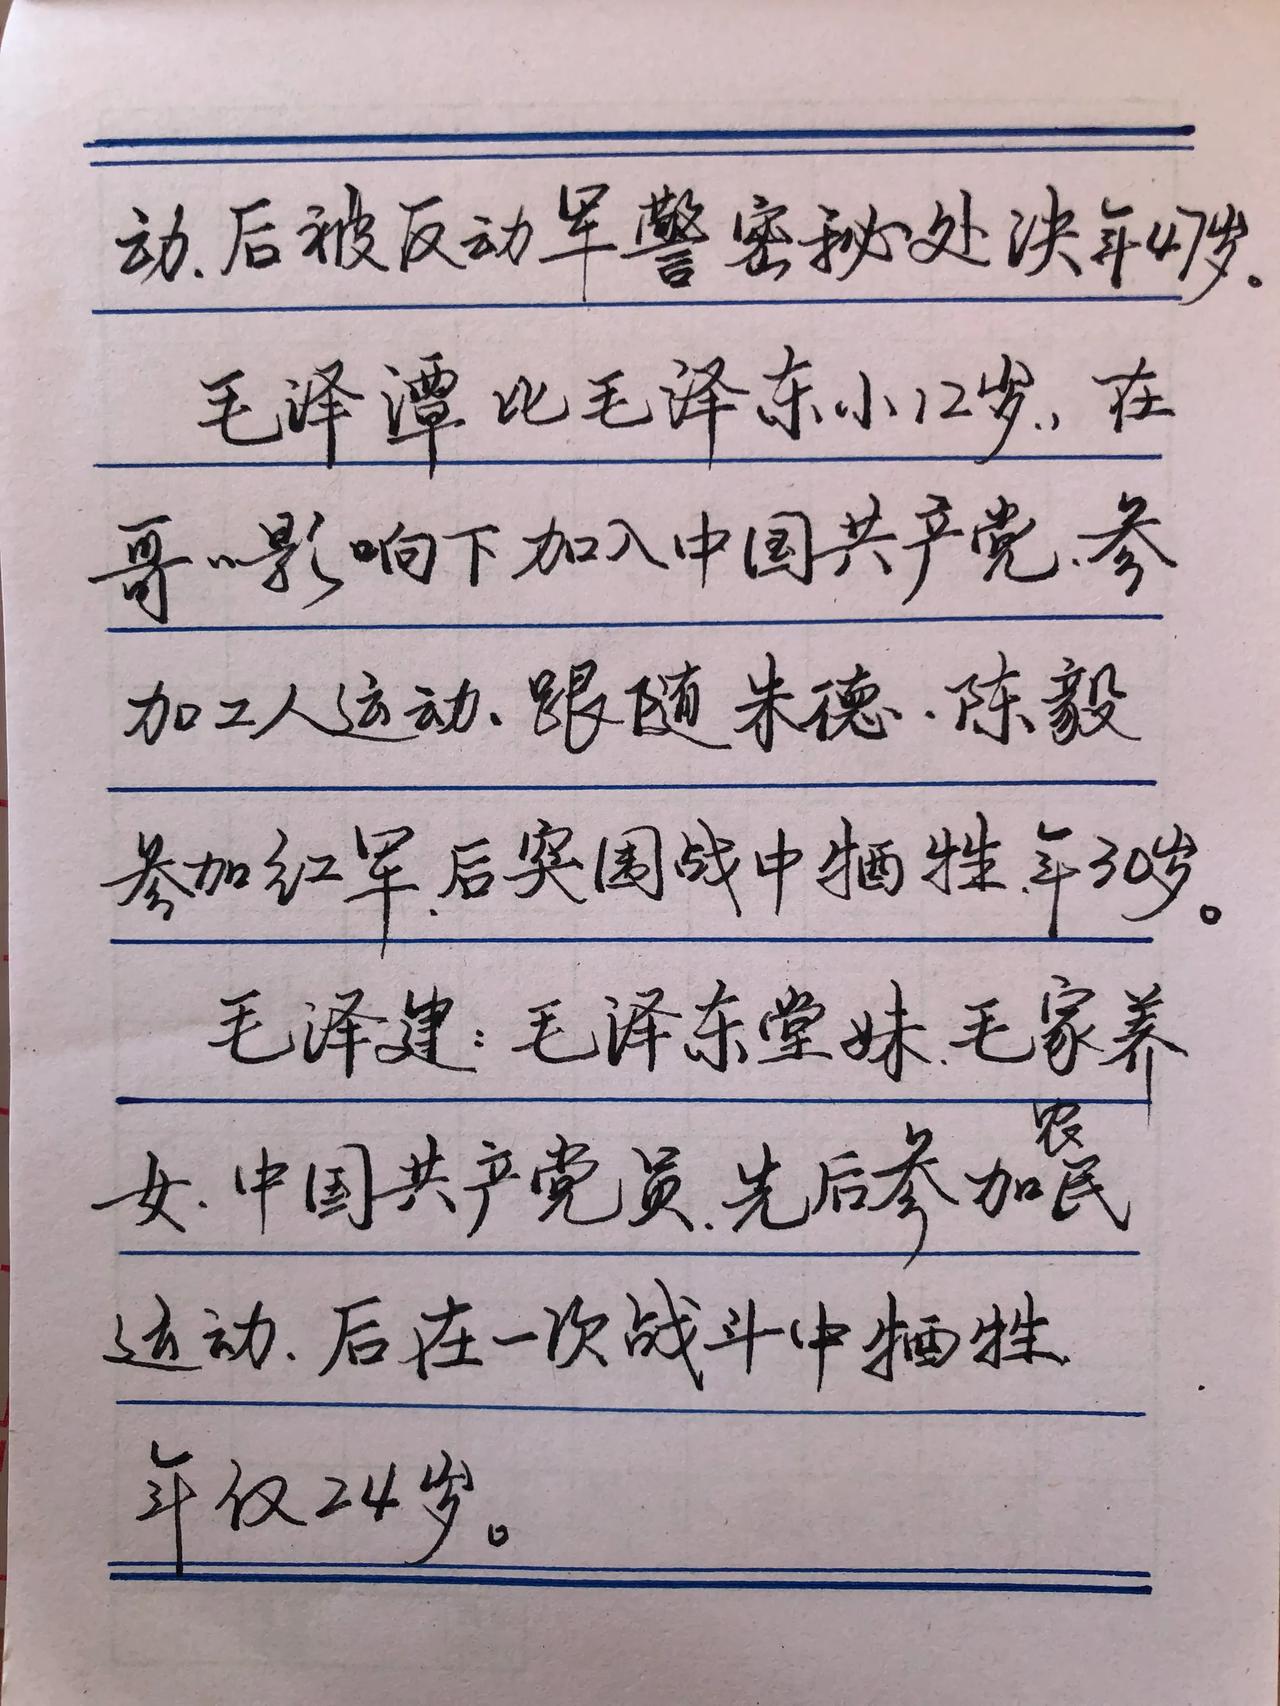 动、后被反动军警密秘处决年47岁。
毛泽潭比毛泽东小12岁、在
哥哥影响下加入中国共产党、参
加工人运动、跟随朱德、陈毅
参加红军、后突围战中牺牲、年30岁。
毛泽建：毛泽东堂妹、毛家养
女、中国共产党员、先后参加农民
运动、后在一次战斗中牺牲、
年仅24岁。